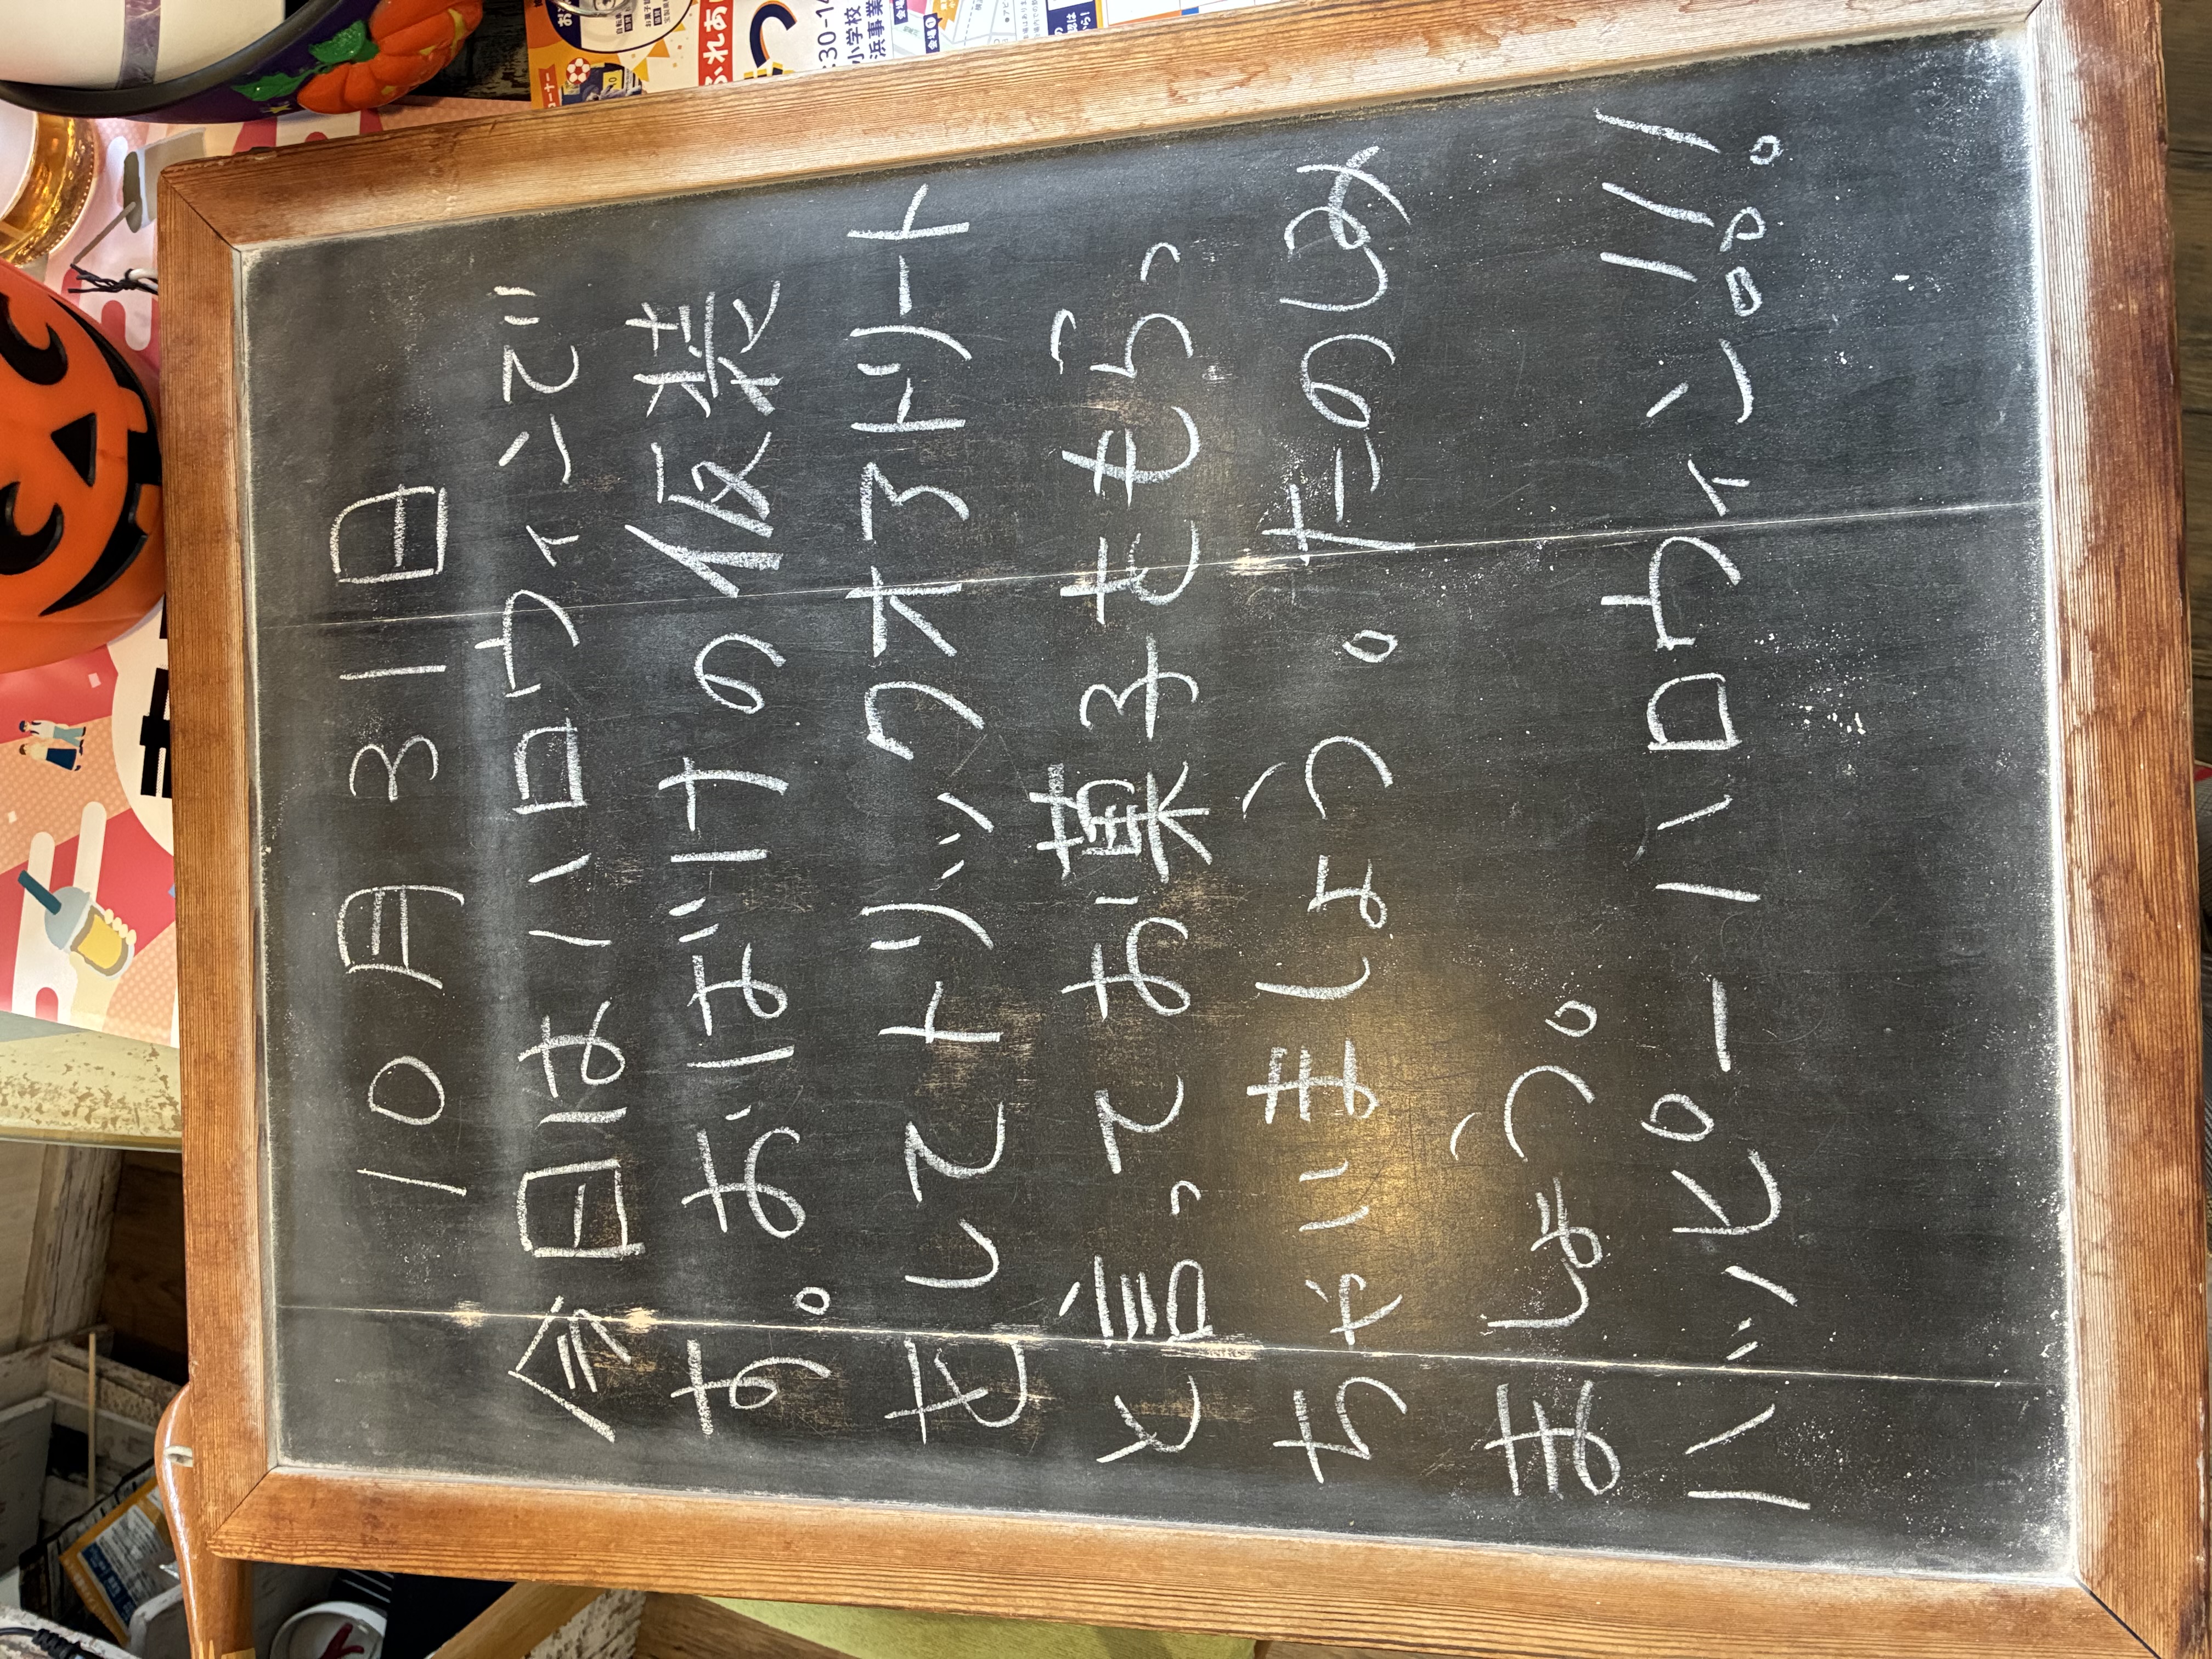 10月31日
今日はハロウィンで
す。おばけの仮装
をしてトリックオアトリート
と言ってお菓子をもらっ
ちゃいましょう。たのしみ
ましょう。
ハッピーハロウィン!!!
ふれあ
:30-14
小学校
浜事業